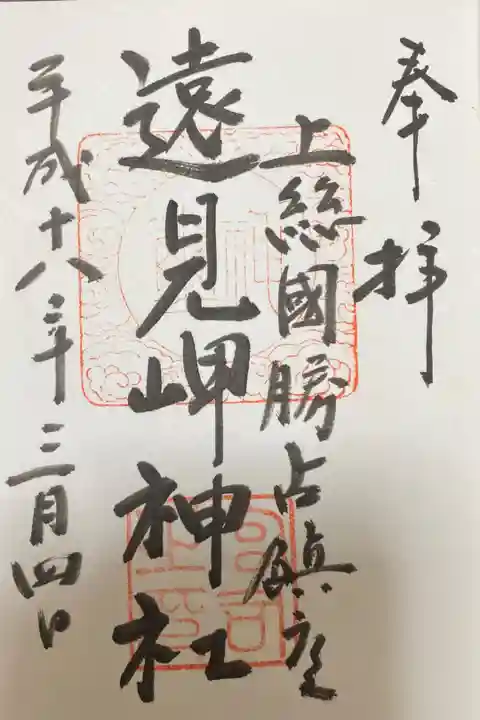 奉拝
上総國勝占鎮座
遠見岬神社
平成十八年三月四日
宮司之印